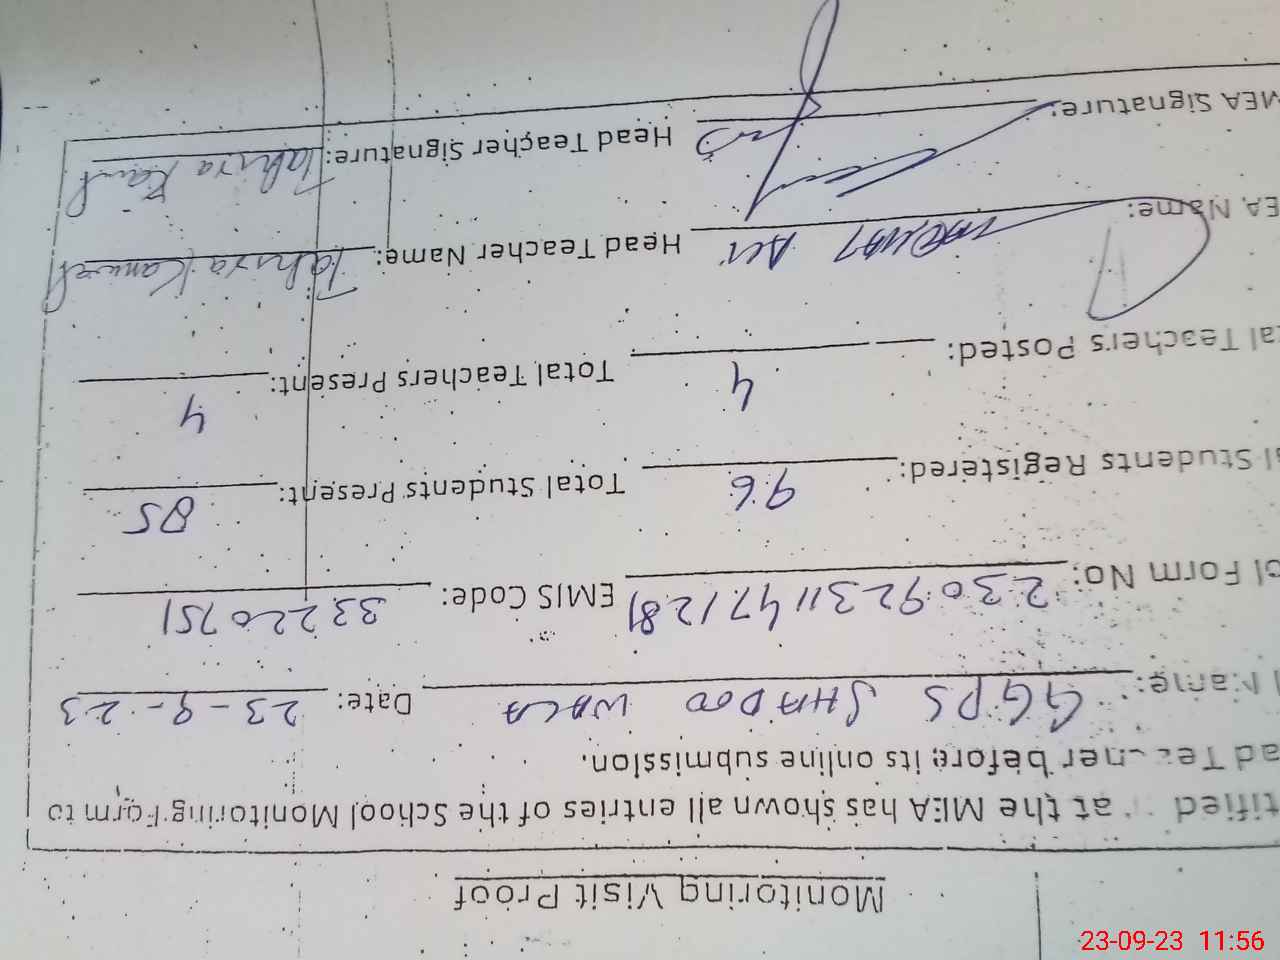 Monitoring Visit Proof
tified at the MEA has shown all entries of the School Monitoring Form to
ad Teacher before its online submission.
l Name: GGPS SHADOO WALA Date: 23-9-23
ol Form No: 23092311471281 EMIS Code: 33220751
al Students Registered: 96 Total Students Present: 85
tal Teachers Posted: 4 Total Teachers Present: 4
EA Name: Ali Head Teacher Name: Tahira Kanwal
MEA Signature: Head Teacher Signature: Tahira Kanwal
23-09-23 11:56